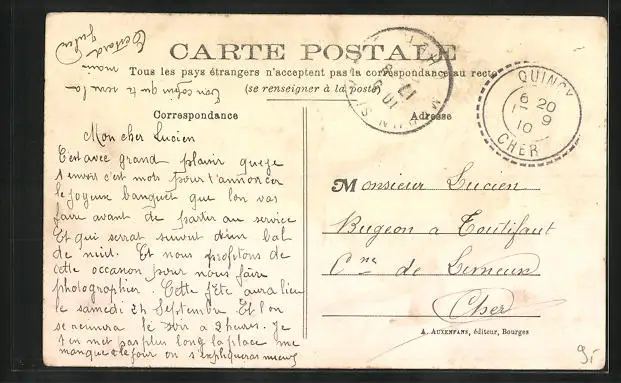 CARTE POSTALE
Tous les pays étrangers n'acceptent pas la correspondance au recto
(se renseigner à la poste)
Correspondance
Mon cher Lucien
C'est avec grand plaisir que je
t'envois c'est mots pour t'annoncer
le joyeux banquet que l'on vas
faire avant de partir au service
Et qui serrat suivit d'un bal
de nuit. Et nous profitons de
cette occasion pour nous faire
photographier. Cette fête aura lieu
le samedi 24 Septembre Et l'on
se reunira le soir a 2 heures. Je
t'en met pas plus long la place me
manque le jour on s'expliqueras mieux
Ton copin qui te sere la
main
Jules
Adresse
Monsieur Lucien
Bugeon à Toutifaut
Cne de Limeux
Cher
A. AUXENFANS, éditeur, Bourges
QUINCY
6 20
9
10
CHER